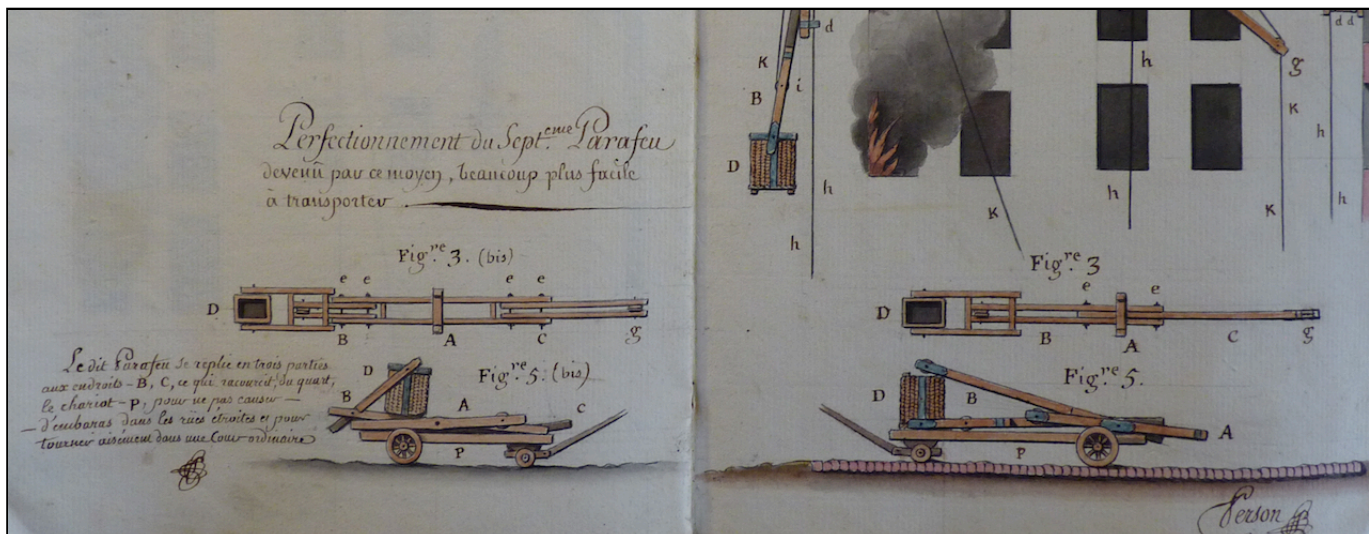 Perfectionnement du Sept.eme Parafeu
devenü par ce moyen, beaucoup plus facile
à transporter
Fig.re 3. (bis)
e e e e
D
B A C g
Le dit Parafeu se replie en trois parties
aux endroits - B, C, ce qui racourcit, du quart,
le chariot - P, pour ne pas causer -
- d'embaras dans les rües étroites et pour
tourner aisément dans une Cour ordinaire
Fig.re 5. (bis)
D
B A C
P
d
K
B i
D
h
h
K
h
h
K
g
K
h
K
d d
h
h
Fig.re 3
e e
D
B A C g
Fig.re 5.
D B
A
P
Person